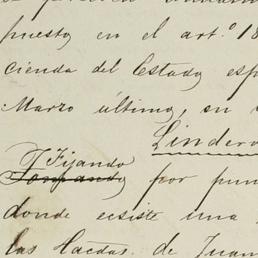 puesto en el art.º 18
cienda del Estado esp
Marzo último, su
Lindero
Fijando
Tomando por pun
donde ecsiste una
las Hacdas. de Juan